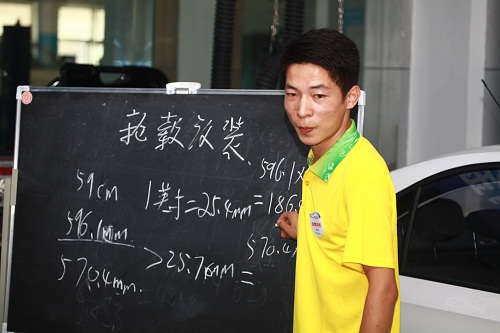 抢毂汝装
59cm
1英寸=25.4mm=186.
596.1×
596.1mm
570.4
570.4mm.
>25.7mm=